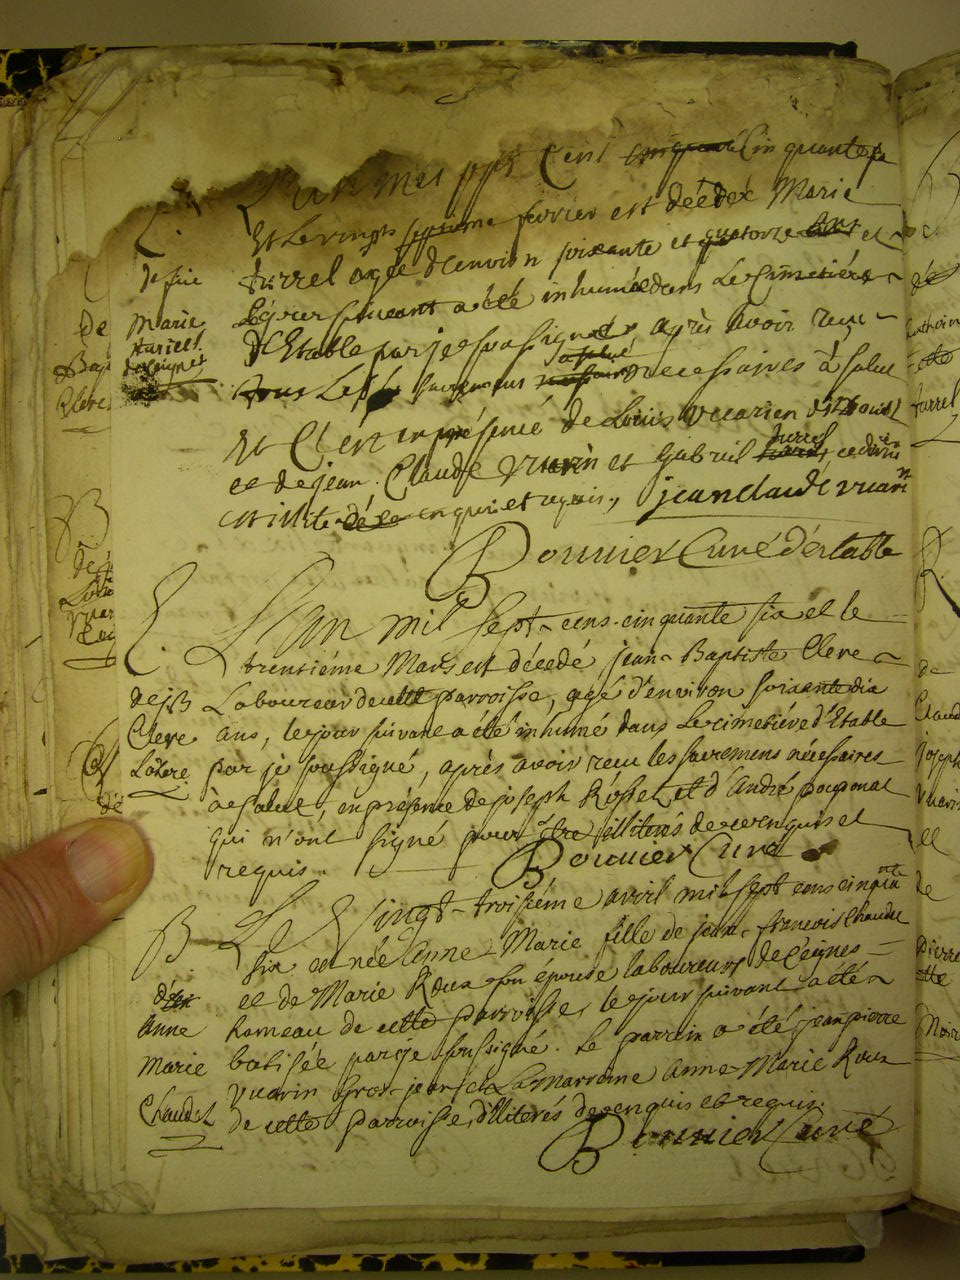 L'an mil sept Cent cinquante Cinquante six
Et le vingt septieme fevrier est décédée Marie
turrel agée d'environ soixante et quatorze ans et
Le jour suivant a été inhumée dans Le Cimetiére
d'Etable par je soussigné après avoir reçu
tous Les sacremens necessaires à salut
Et C'est en présence de Louis vuarin
et de jean Claude vuarin et Gabriel turrel
illité de ce enquis et requis, jean claude vuarin
Bonnier Curé d'estable
de fue
Marie
turrel
de Ceignes
E.
L'an mil sept cens cinquante six et le
trentiéme Mars est décedé jean Baptiste Clere
Laboureur de cette parroisse, agé d'environ soixante dix
ans, le jour suivant a été inhumé dans le cimetiére d'Etable
par je soussigné, après avoir recu les sacremens nécessaires
à salut, en présence de joseph Rosset et d'André poponat
qui n'ont signé pour être illiterés de ce enquis et
requis. Bonnier Curé
de jB
Clere
B
Le Vingt-troisiéme avril mil sept cens cinquante
six est née Anne Marie fille de jean françois Chaudet
et de Marie Roux son épouse laboureurs de Ceignes
hameau de cette parroisse, le jour suivant a été
batisée par je soussigné. Le parrain a été jean pierre
vuarin Gros-jean et La marraine Anne Marie Roux
de cette parroisse, illiterés de ce enquis et requis.
Bonnier Curé
Anne
Marie
Chaudet